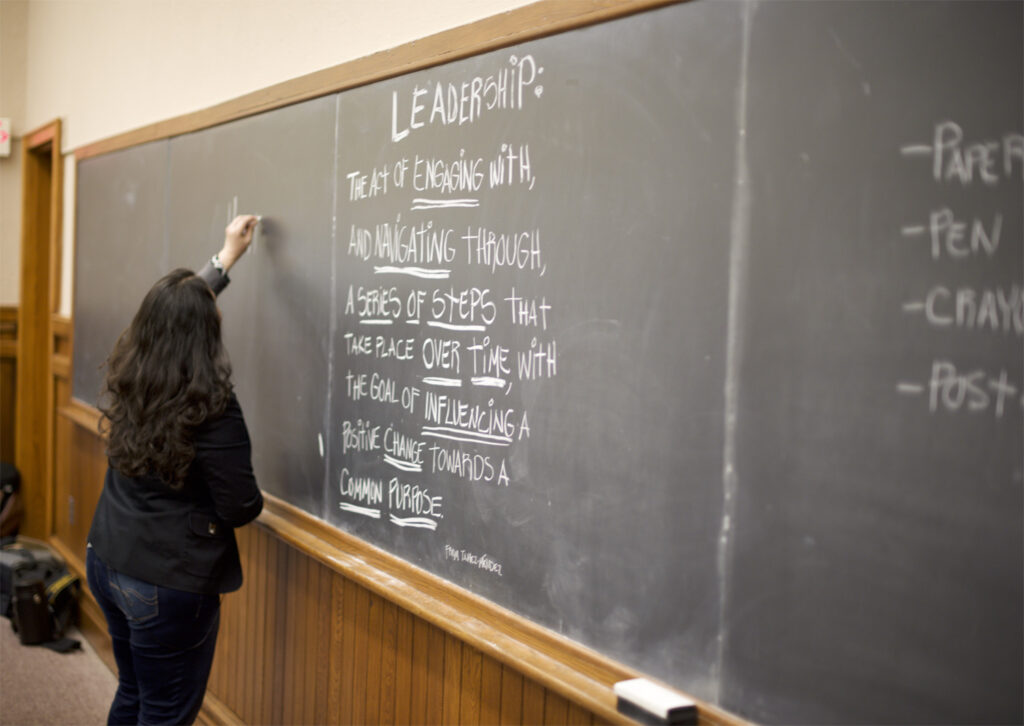 LEADERSHIP:
THE ACT OF ENGAGING WITH,
AND NAVIGATING THROUGH,
A SERIES OF STEPS THAT
TAKE PLACE OVER TIME, WITH
THE GOAL OF INFLUENCING A
POSITIVE CHANGE TOWARDS A
COMMON PURPOSE.
-PAPER
-PEN
-CRAYO
-POST-